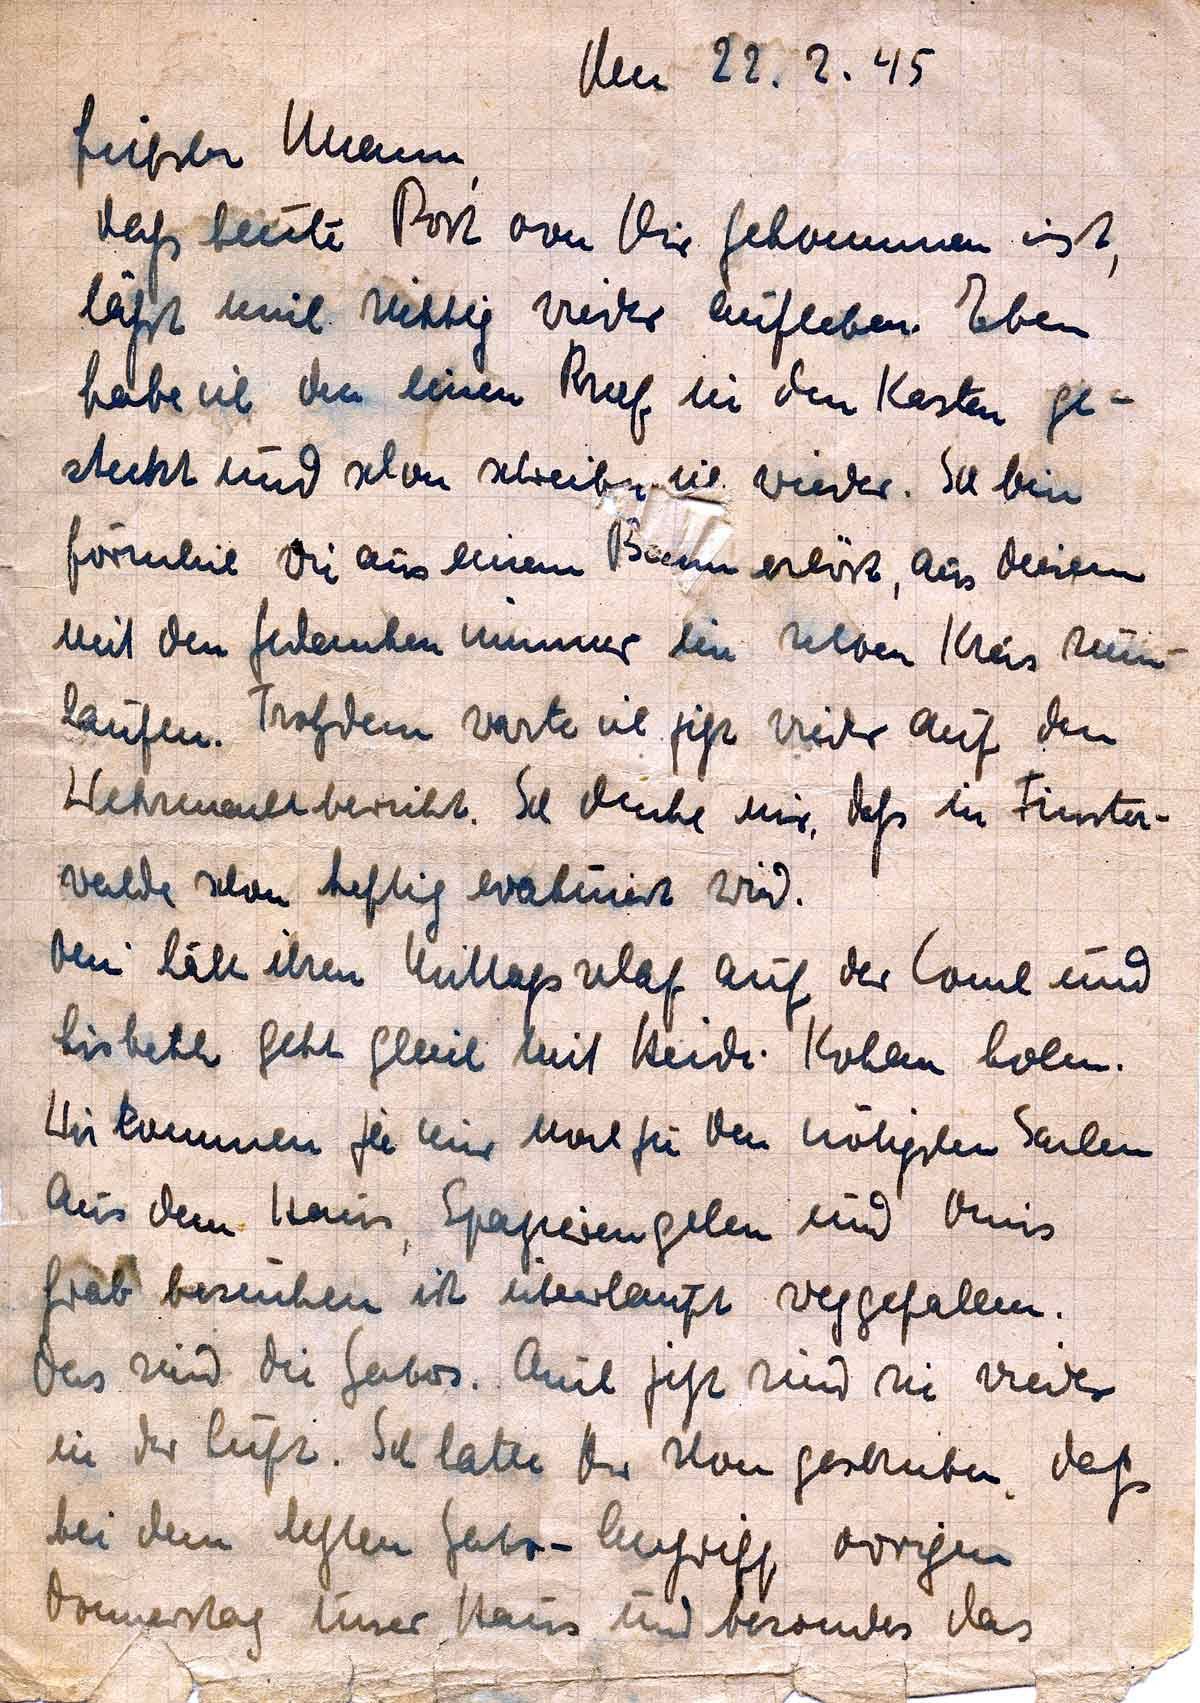 Den 22. 2. 45
Mann,
daß heute Post von Dir gekommen ist,
läßt mich richtig wieder aufleben. Eben
habe ich den einen Brief in den Kasten ge-
steckt und schon schreibe ich wieder. Ich bin
förmlich wie aus einem Bann erlöst, aus diesem
mit den Gedanken immer im selben Kreis rum-
laufen. Trotzdem warte ich jetzt wieder auf den
Wehrmachtbericht. Ich denke mir, daß in Finster-
walde schon heftig evakuiert wird.
hält ihren Mittagsschlaf auf der Couch und
Lisbeth geht gleich mit Heidi Kohlen holen.
Wir kommen ja nur noch zu den nötigsten Sachen
aus dem Haus, Spazierengehen und Omis
Grab besuchen ist überhaupt weggefallen.
Das sind die Jabos. Auch jetzt sind sie wieder
in der Luft. Ich hatte Dir schon geschrieben, daß
bei dem letzten Jabo-Angriff vorigen
Donnerstag unser Haus und besonders das